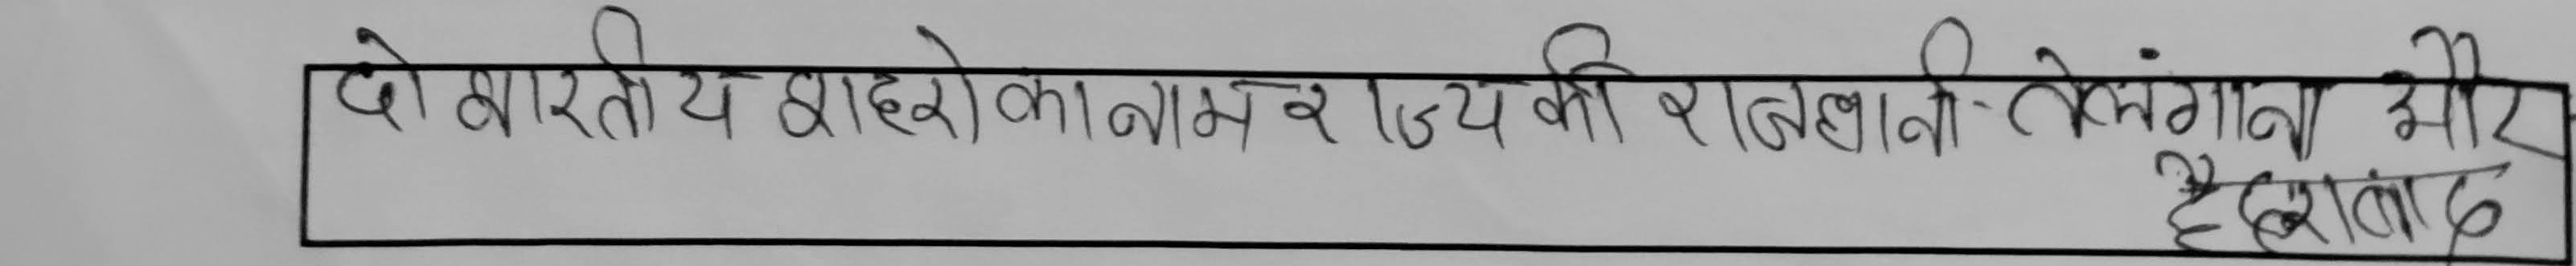 दो भारतीय शहरो का नाम राज्य की राजधानी - तेलंगाना और
हैदराबाद